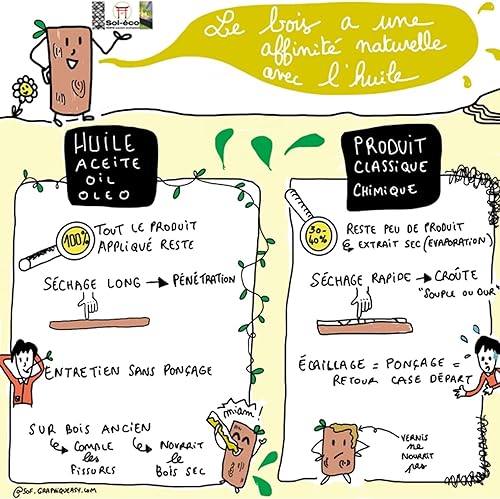 Sol-éco
Le bois a une
affinité naturelle
avec l'huile
HUILE
ACEITE
OIL
OLEO
100%
TOUT LE PRODUIT
APPLIQUÉ RESTE
SÉCHAGE LONG → PÉNÉTRATION
ENTRETIEN SANS PONÇAGE
SUR BOIS ANCIEN
COMBLE
les
FISSURES
NOURRIT
le
BOIS SEC
miam!
@SOF.GRAPHIQUEASY.COM
PRODUIT
CLASSIQUE
CHIMIQUE
30-
40%
RESTE PEU DE PRODUIT
EXTRAIT SEC (ÉVAPORATION)
SÉCHAGE RAPIDE → CROÛTE
"SOUPLE OU DUR"
ÉCAILLAGE = PONÇAGE =
RETOUR CASE DÉPART
VERNIS
ne
NOURRIT
pas